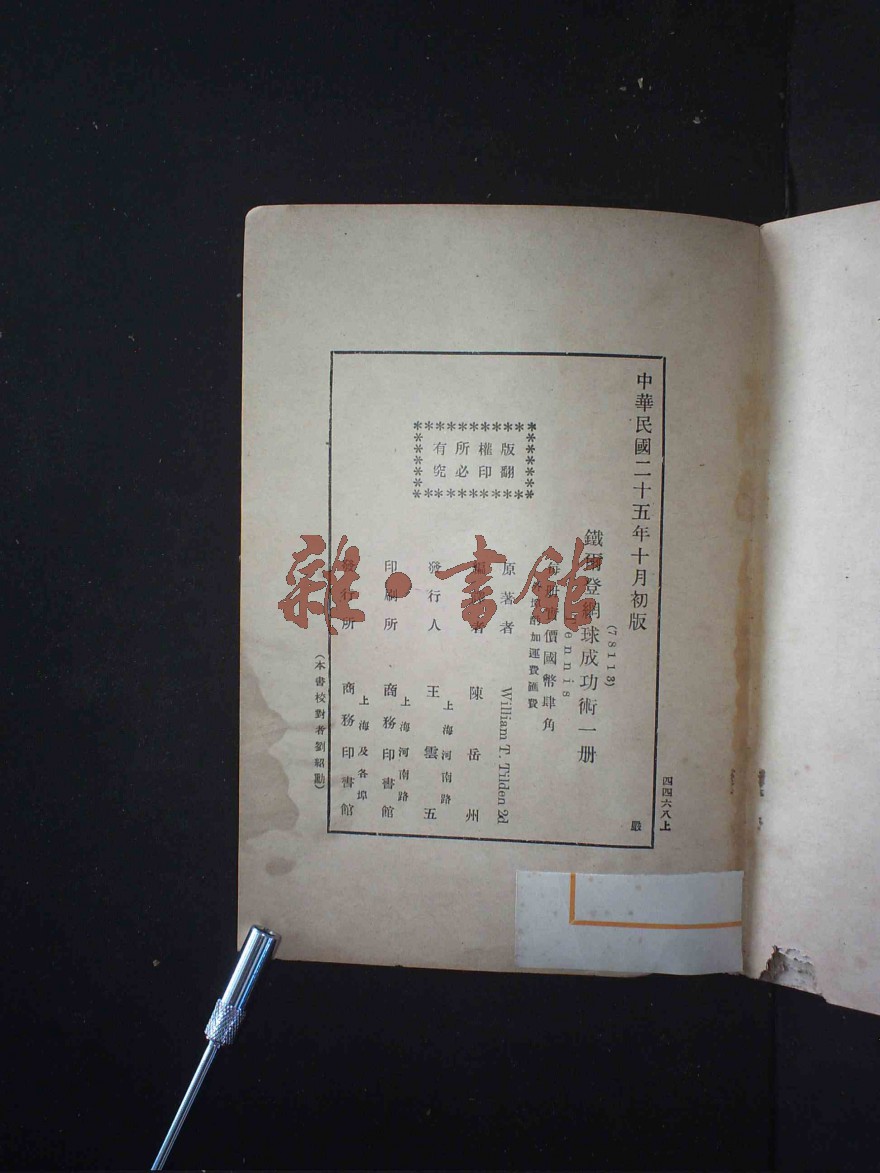 中華民國二十五年十月初版
四四六八上
嚴
(78113)
鐵爾登網球成功術一册
Tennis
每册實價國幣肆角
外埠酌加運費匯費
版權所有
翻印必究
原著者 William T. Tilden 2d
編譯者 陳岳州
發行人 王雲五
上海河南路
印刷所 商務印書館
上海河南路
發行所 商務印書館
上海及各埠
(本書校對者劉紹勳)
雜·書館